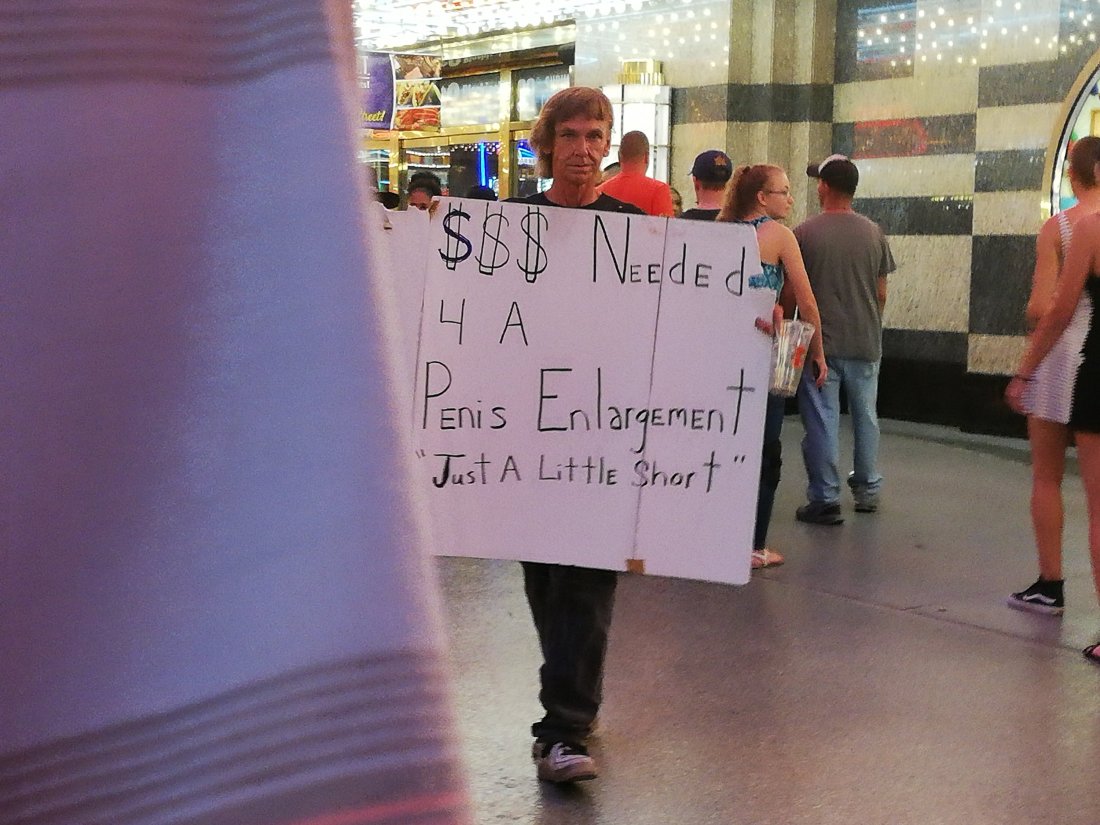 $$$ NEEdEd
4 A
PENis ENlargEMENT
"Just A LittlE Short"